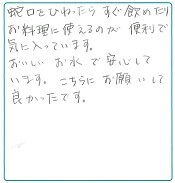 蛇口をひねったら すぐ飲めたり
お料理に使えるのが 便利で
気に入っています。
おいしい お水 で 安心して
います。こちらに お願いして
良かったです。